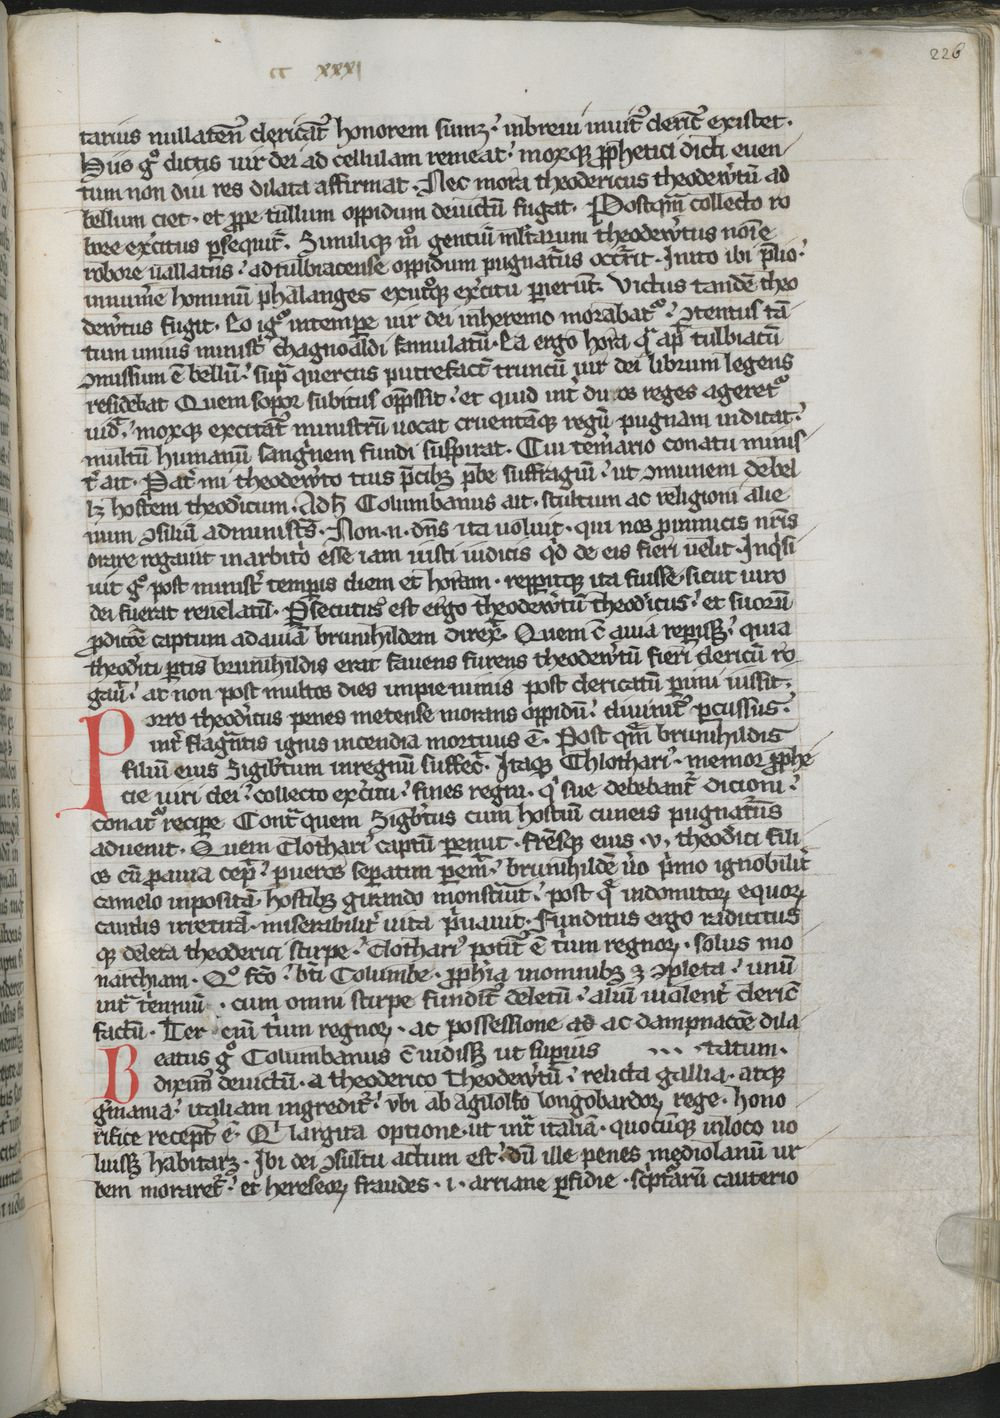 cc xxxi
226
tarius nullatenꝰ clericat᷑ honorem sumꝫ· inbreui inuit᷑ cleric᷑ existet·
Hiis gͦ dictis uir dei ad cellulam remeat· moxqꝫ ꝓphetici dicti euen
tum non diu res dilata affirmat· Nec mora theodericus theodeb᷑tū ad
bellum ciet· et ꝓpe tullum oppidum deuictū fugat· Postqm̄ collecto ro
bore exͤcitus ꝑsequit᷑· Similiqꝫ mͦ gentiū ml̄tarum theodeb᷑tus noīe
robore uallatus· ad tulbiacense oppidum pugnat᷑us occͬrit· Inito ibi p̄lio·
innum̄e hominū phalanges ex ut͛qꝫ exͤcitu ꝑierūt· Victus tandē theo
deb᷑tus fugit· Eo igͦ intempe uir dei inheremo morabatͬ· ꝯtentus tā
tum unius minist͛ chagnoaldi famulatū· Ea ergo hora qͣ ap᷑ tulbiacū
ꝯmissum ē bellū· supͣ quercus putrefact᷑ truncū uir dei librum legens
residebat Quem sopor subitus opp̄ssit· et quid int᷑ duos reges ageretͬ
uid᷑· moxqꝫ excitat᷑ ministrū uocat cruentāqꝫ regū pugnam indicat·
multū humanū sangͥnem fundi suspirat· Cui tem̄ario conatu minis
t᷑ ait· Pat᷑ mi theodeb᷑to tuis p̄cibꝫ p̄be suffragiū· ut ꝯmunem debel
lꝫ hostem theodꝰicum· Ad h̄ Columbanus ait· stultum ac religioni alie
num ꝯsiliū administ͛s· Non·n· dn̄s ita uoluit· qui nos ꝓ inimicis nr̄is
orare rogauit in arbitͥo esse iam iusti iudicis qͥd de eis fieri uelit· Inqͥsi
uit gͦ post minist᷑ temꝑis diem et horam· repꝑitqꝫ ita fuisse sicut uiro
dei fuerat reuelatū· Ꝑsecutus est ergo theodeb᷑tū theodꝰicus· et suorū
ꝓdicōe captum ad auiā brunihildem direx᷑· Quem c̄ auia repisꝫ· quia
theodꝰici ꝑtis brunihildis erat fauens furens theodeb᷑tū fieri clericū ro
gau᷑· at non post multos dies impie nimis post clericatū ꝑimi iussit·
Porro theodꝰicus penes metense morans oppidū· diuinit᷑ ꝑcussus·
int᷑ flagͣntis ignis incendia mortuus ē· Post qͣm brunihildis
filiū eius Sigib᷑tum inregnū suffec᷑· Itaqꝫ Chlothariꝰ· memor ꝓphe
cie uiri dei· collecto exͤcitu· fines regni· qͥ sue debebant᷑ dicioni·
conatͬ recipe Contͣ quem Sigb᷑tus cum hostiū cuneis pugnat᷑us
aduenit· Quem Clothariꝰ captū ꝑemit· fr̄esqꝫ eius ·v· theodꝰici fili
os cū ꝓauia cep᷑· pueros seꝑatim ꝑem᷑· brunihildē uͦo pͥmo ignobilit᷑
camelo inpositā· hostibꝫ girando monstͣuit· post qͣ indomitoꝝ equoꝝ
caudis irretitā· miserabilit᷑ uita pͥuauit· Funditus ergo radicitus
qꝫ deleta theoderici stirpe· Clothariꝰ potit᷑ ē tͥum regnoꝝ· solus mo
narchiam· Qͦ fc̄o· bt̄i Columbe· ꝓph̄ia inomnibꝫ ꝫ ꝯpleta· unū
intͣ tͥenniū· cum omni stirpe fundit᷑ deletū· aliū uiolent᷑ cleric᷑
factū· Ter ciū tͥum regnoꝝ· ac possessione ad ac dampnacōe dila
tatum·
Beatus gͦ Columbanus c̄ uidisꝫ ut supius
dixim᷑ deuictū· a theoderico theodeb᷑tū· relicta gallia· atqꝫ
gͤmania· italiam ingredit᷑· vbi ab agilolfo longobardoꝝ rege· hono
rifice recept᷑ ē· Qͥ largita optione· ut intͣ italiā· quocūqꝫ inloco uo
luisꝫ habitarꝫ· Ibi dei ꝯsultu actum est· dū ille penes mediolanū ur
bem moraret᷑· et hereseoꝝ fraudes· i· arriane ꝑfidie· sc̄pt͛arū cauterio